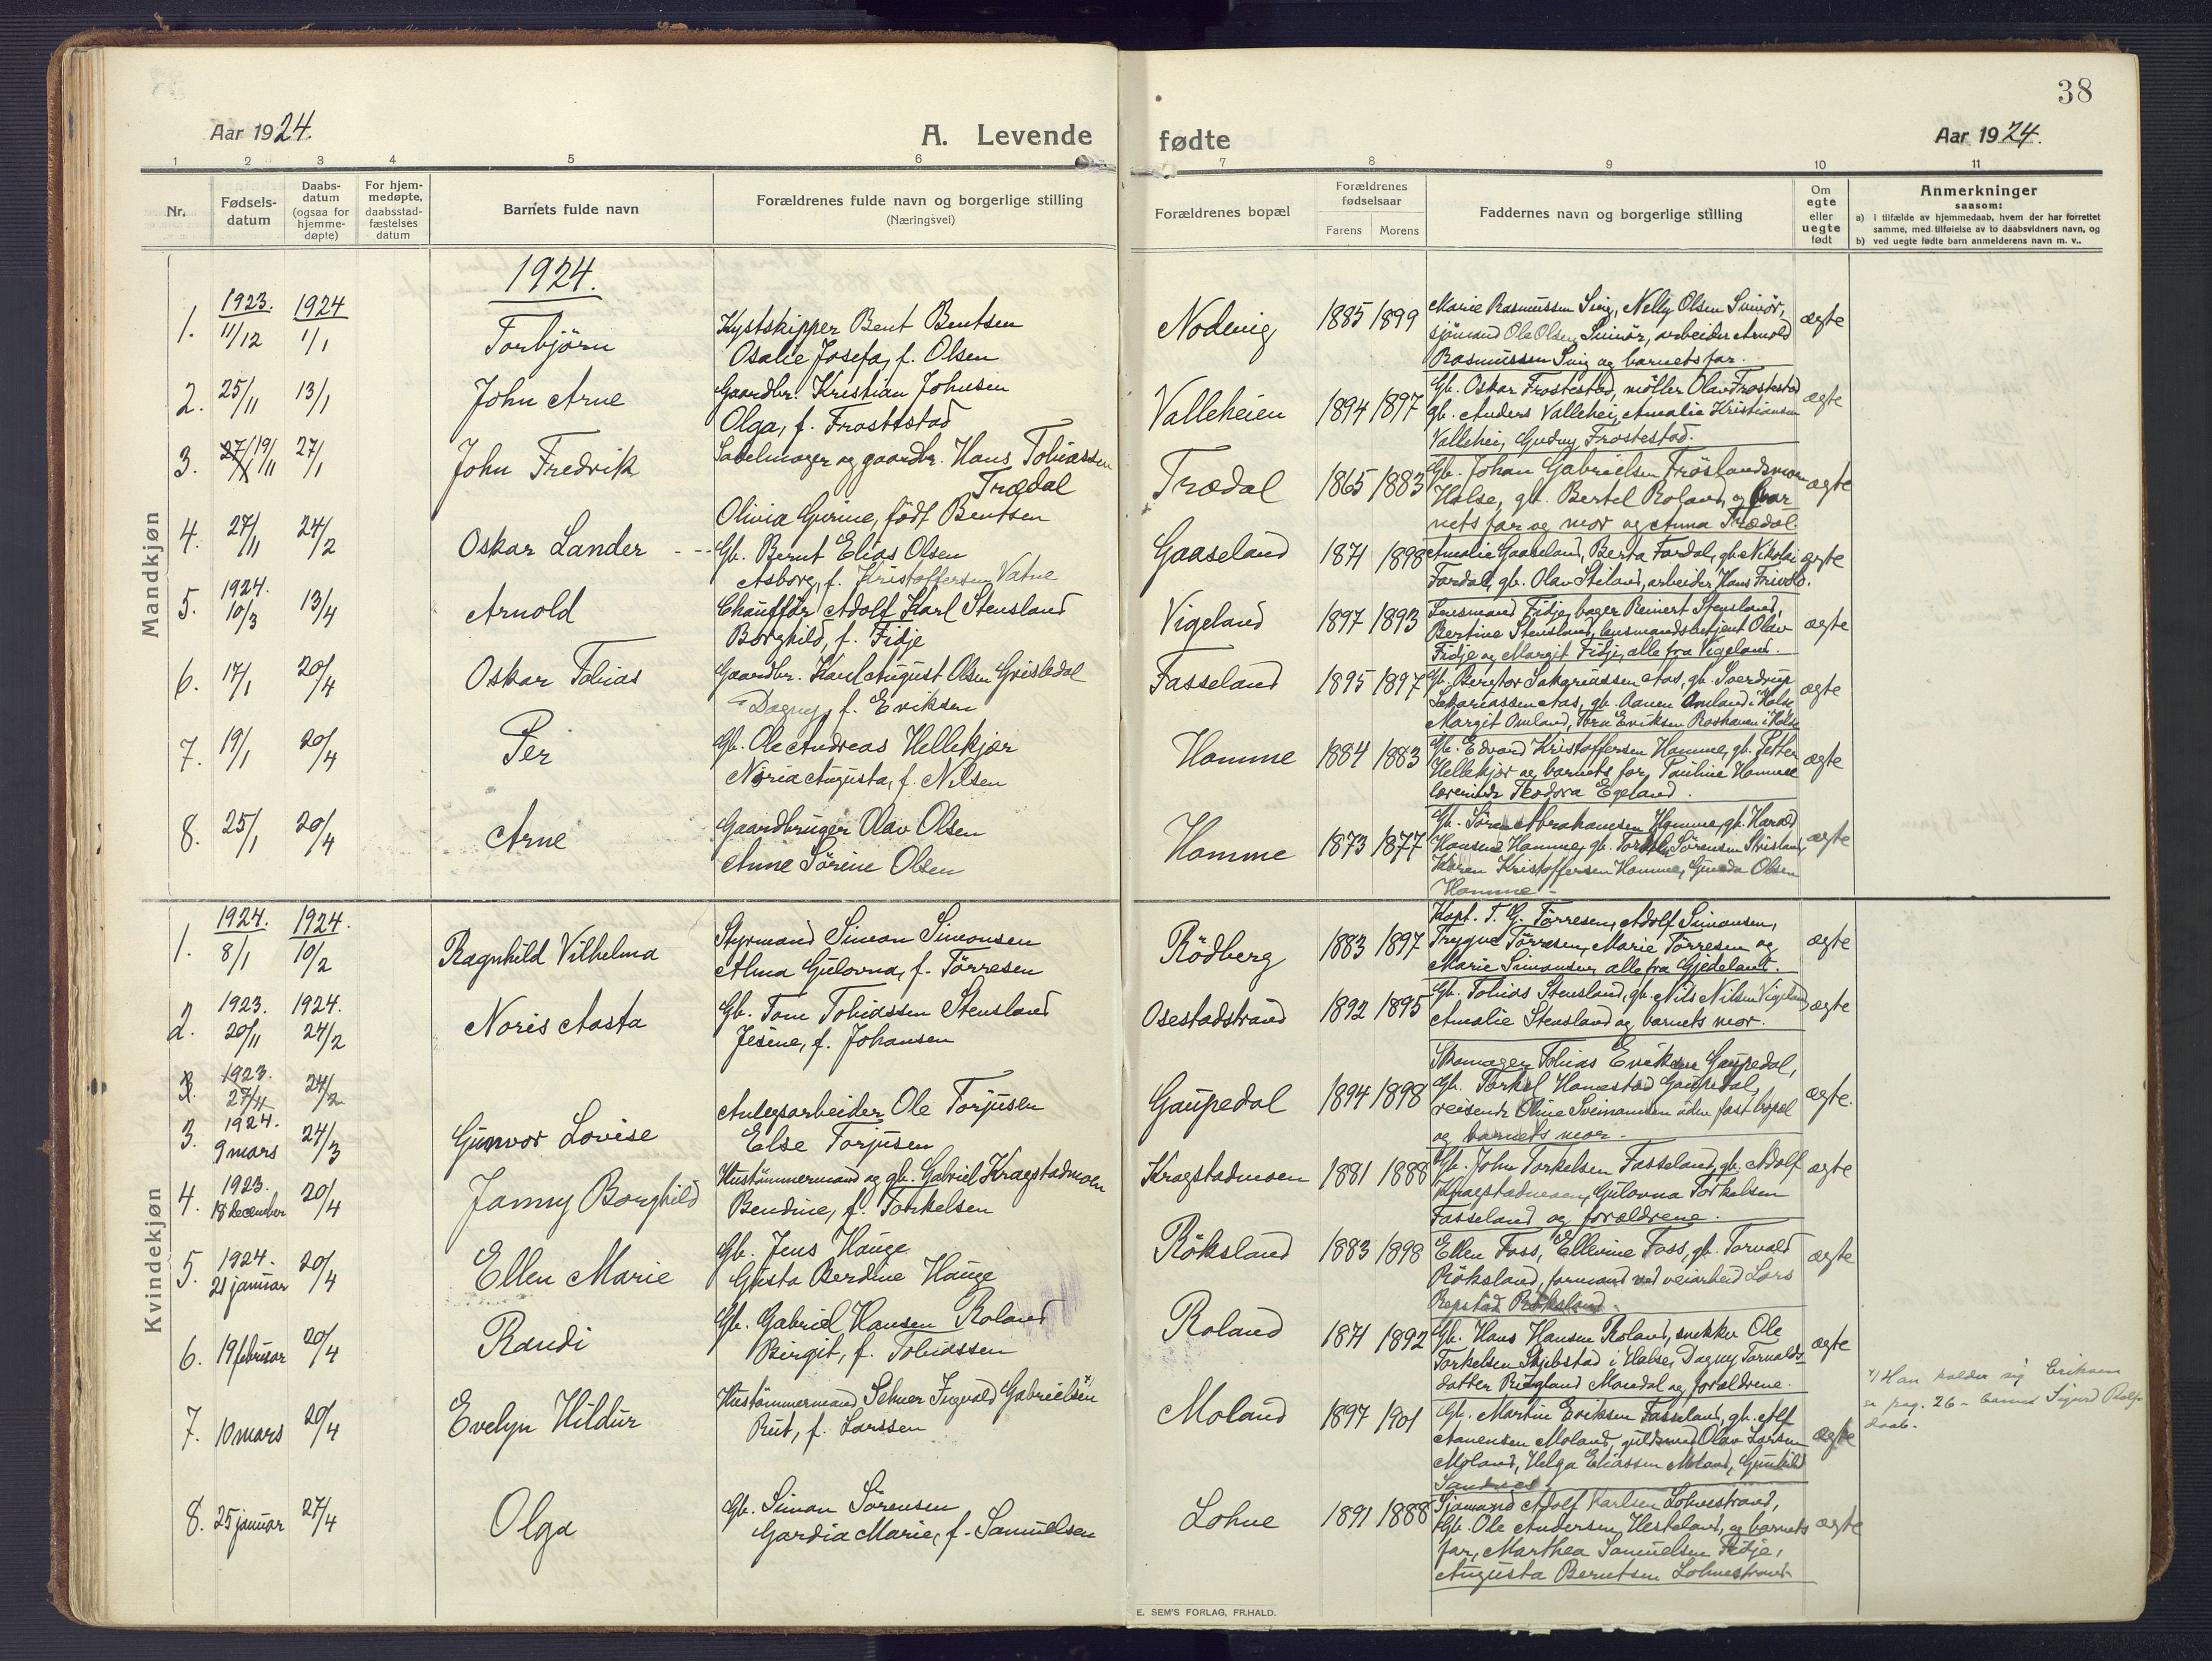 38
Aar 1924.
A. Levende fødte
Aar 1924.
1 2 3 4 5 6 7 8 9 10 11
Nr.
Fødsels-
datum
Daabs-
datum
(ogsaa for
hjemme-
døpte)
For hjem-
medøpte,
daabsstad-
fæstelses
datum
Barnets fulde navn
Forældrenes fulde navn og borgerlige stilling
(Næringsvei)
Forældrenes bopæl
Forældrenes
fødselsaar
Farens Morens
Faddernes navn og borgerlige stilling
Om
egte
eller
uegte
født
Anmerkninger
saasom:
a) i tilfælde av hjemmedaab, hvem der har forrettet
samme, med tilføielse av to daabsvidners navn, og
b) ved uegte fødte barn anmelderens navn m. v..
Mandkjøn
1924.
1. 1923. 11/12 1924 1/1 Torbjörn
Kystskipper Bent Bentsen
Osalie Josefa, f. Olsen
Nodevig 1885 1899
Marie Rasmussen Svig, Nelly Olsen Svinör,
sjömand Ole Olsen Svinör, arbeider Arnold
Rasmussen Svig og barnets far.
ægte
2. 25/11 13/1 John Arne
Gaardbr. Kristian Johnsen
Olga, f. Frostestad
Valleheien 1894 1897
Gb. Oskar Frostestad, möller Olav Frostestad
gb. Anders Vallehei, Amalie Kristiansen
Vallehei, Gudny Frostestad.
ægte
3. 19/11 27/1 John Fredrik
Sadelmager og gaardbr. Hans Tobiassen
Trædal
Olivia Gurine, födt Bentsen
Trædal 1865 1883
Gb. Johan Gabrielsen Fröslandsmoen
Halse, gb. Bertel Roland, og bar-
nets far og mor og Anna Trædal.
ægte
4. 27/11 24/2 Oskar Lander
Gb. Bernt Elias Olsen
Asborg, f. Kristoffersen Vatne
Gaaseland 1871 1898
Amalie Gaaseland, Berta Fardal, gb. Nikolai
Fardal, gb. Olav Stiland, arbeider Hans Frivold.
ægte
5. 1924. 10/3 13/4 Arnold
Chauffør Adolf Karl Stensland
Borghild, f. Fidje
Vigeland 1897 1893
Lensmand Fidje, bager Reinert Stensland,
Bertine Stensland, lensmandsbetjent Olav
Fidje og Margit Fidje, alle fra Vigeland.
ægte
6. 17/1 20/4 Oskar Tobias
Gaardbr. Karl August Olsen Grisledal
Dagny, f. Eriksen
Fasseland 1895 1897
Gb. Bergtor Sakariassen Aas, gb. Sverdrup
Sakariassen Aas, gb. Aanen Omland i Halse
Margit Omland, Tora Eriksen Roshaven i Halse
ægte
7. 19/1 20/4 Per
Gb. Ole Andreas Hellekjær
Noria Augusta, f. Nilsen
Homme 1884 1883
Gb. Edvard Kristoffersen Homme, gb. Petter
Hellekjær og barnets far, Pauline Homme
lærerinde Teodora Egeland.
ægte
8. 25/1 20/4 Arne
Gaardbruger Olav Olsen
Anne Sörine Olsen
Homme 1873 1877
Gb. Sören Abrahamsen Homme, gb. Harald
Hansen Homme, gb. Torkel Sörensen
Karen Kristoffersen Homme, Gunda Olsen
Homme.
ægte
Kvindekjøn
1. 1924. 8/1 1924. 10/2 Ragnhild Vilhelma
Styrmand Simon Simonsen
Alma Gulovna, f. Törresen
Rödberg 1883 1897
Kapt. T. G. Törresen, Adolf Simonsen,
Trygve Törresen, Marie Törresen og
Marie Simonsen, alle fra Gjedeland.
ægte
2. 1923. 20/11 1924. 24/2 Noris Aasta
Gb. Tom Tobiassen Stensland
Jesine, f. Johansen
Osestadstrand 1892 1895
Gb. Tobias Stensland, gb. Nils Nilsen Vigeland
Amalie Stensland og barnets mor.
ægte
3. 1923. 27/11 24/2
3. 1924. 9 mars 24/3 Gunvor Lovise
Anlegsarbeider Ole Torjusen
Else Torjusen
Gaupedal 1894 1898
Skomager Tobias Eriksen Gaupedal,
Gb. Torkel Homestad Gaupedal,
reisende Oline Sveinamsen uden fast bopæl
og barnets mor.
ægte.
4. 1923. 18 december 20/4 Janny Borghild
Hustömmermand og gb. Gabriel Kragstadmoen
Bendine, f. Torkelsen
Kragstadmoen 1881 1888
Gb. John Torkelsen Fasseland, gb. Adolf
Kragstadmoen, Gulovna Torkelsen
Fasseland og forældrene.
ægte
5. 1924. 21 januar 20/4 Ellen Marie
Gb. Jens Hauge
Gusta Berdine Hauge
Röksland 1883 1898
Ellen Foss, Ellevine Foss, gb. Torvald
Röksland, formand ved veiarbeid Lars
Repstad Röksland.
ægte
6. 19 februar 20/4 Randi
Gb. Gabriel Hansen Roland
Birgit, f. Tobiassen
Roland 1871 1892
Gb. Hans Hansen Roland, snekker Ole
Torkelsen Skjebstad i Halse, Dagny Torvalds-
datter Mandal og forældrene.
ægte
7. 10 mars 20/4 Evelyn Hildur
Hustömmermand Selmer Ingvald Gabrielsen x)
Rut, f. Larssen
Moland 1897 1901
Gb. Martin Eriksen Fasseland, gb. Alf
Aanensen Moland, guldsmed Olav Larsen
Moland, Helga Eliassen Moland, Gunhild
Sandnes.
ægte
x) Han kalder sig Eriksen
se pag. 26 - barnet Sigurd Rolfs
daab.
8. 25 januar 27/4 Olga
Gb. Simon Sörensen
Gardia Marie, f. Samuelsen
Lohne 1891 1888
Sjömand Adolf Karlsen Lohnestrand,
Gb. Ole Andersen Hesteland, og barnets
far, Marthea Samuelsen Fidje,
Augusta Berntsen Lohnestrand
ægte
E. SEM'S FORLAG, FR.HALD.